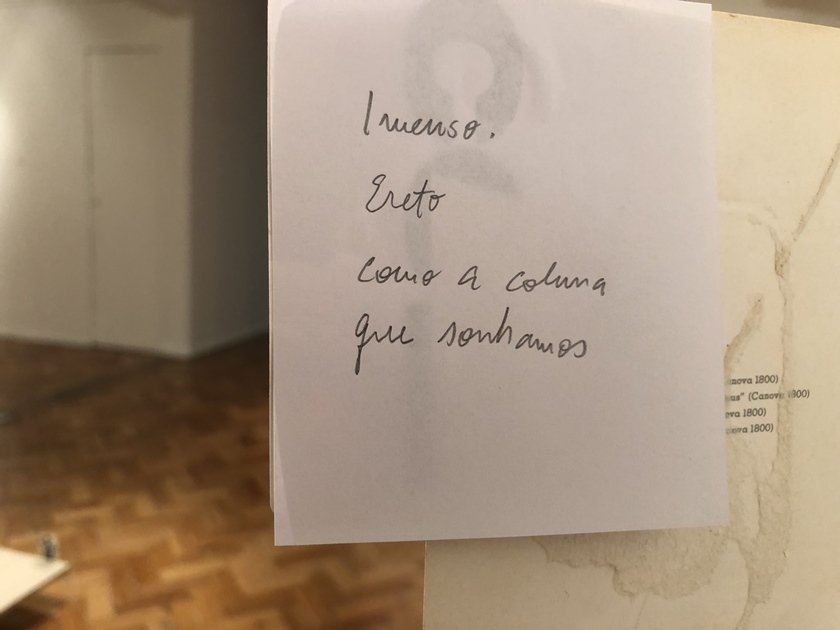 Imenso.
Ereto
como a coluna
que sonhamos
nova 1800)
us" (Canova 1800)
ova 1800)
nova 1800)